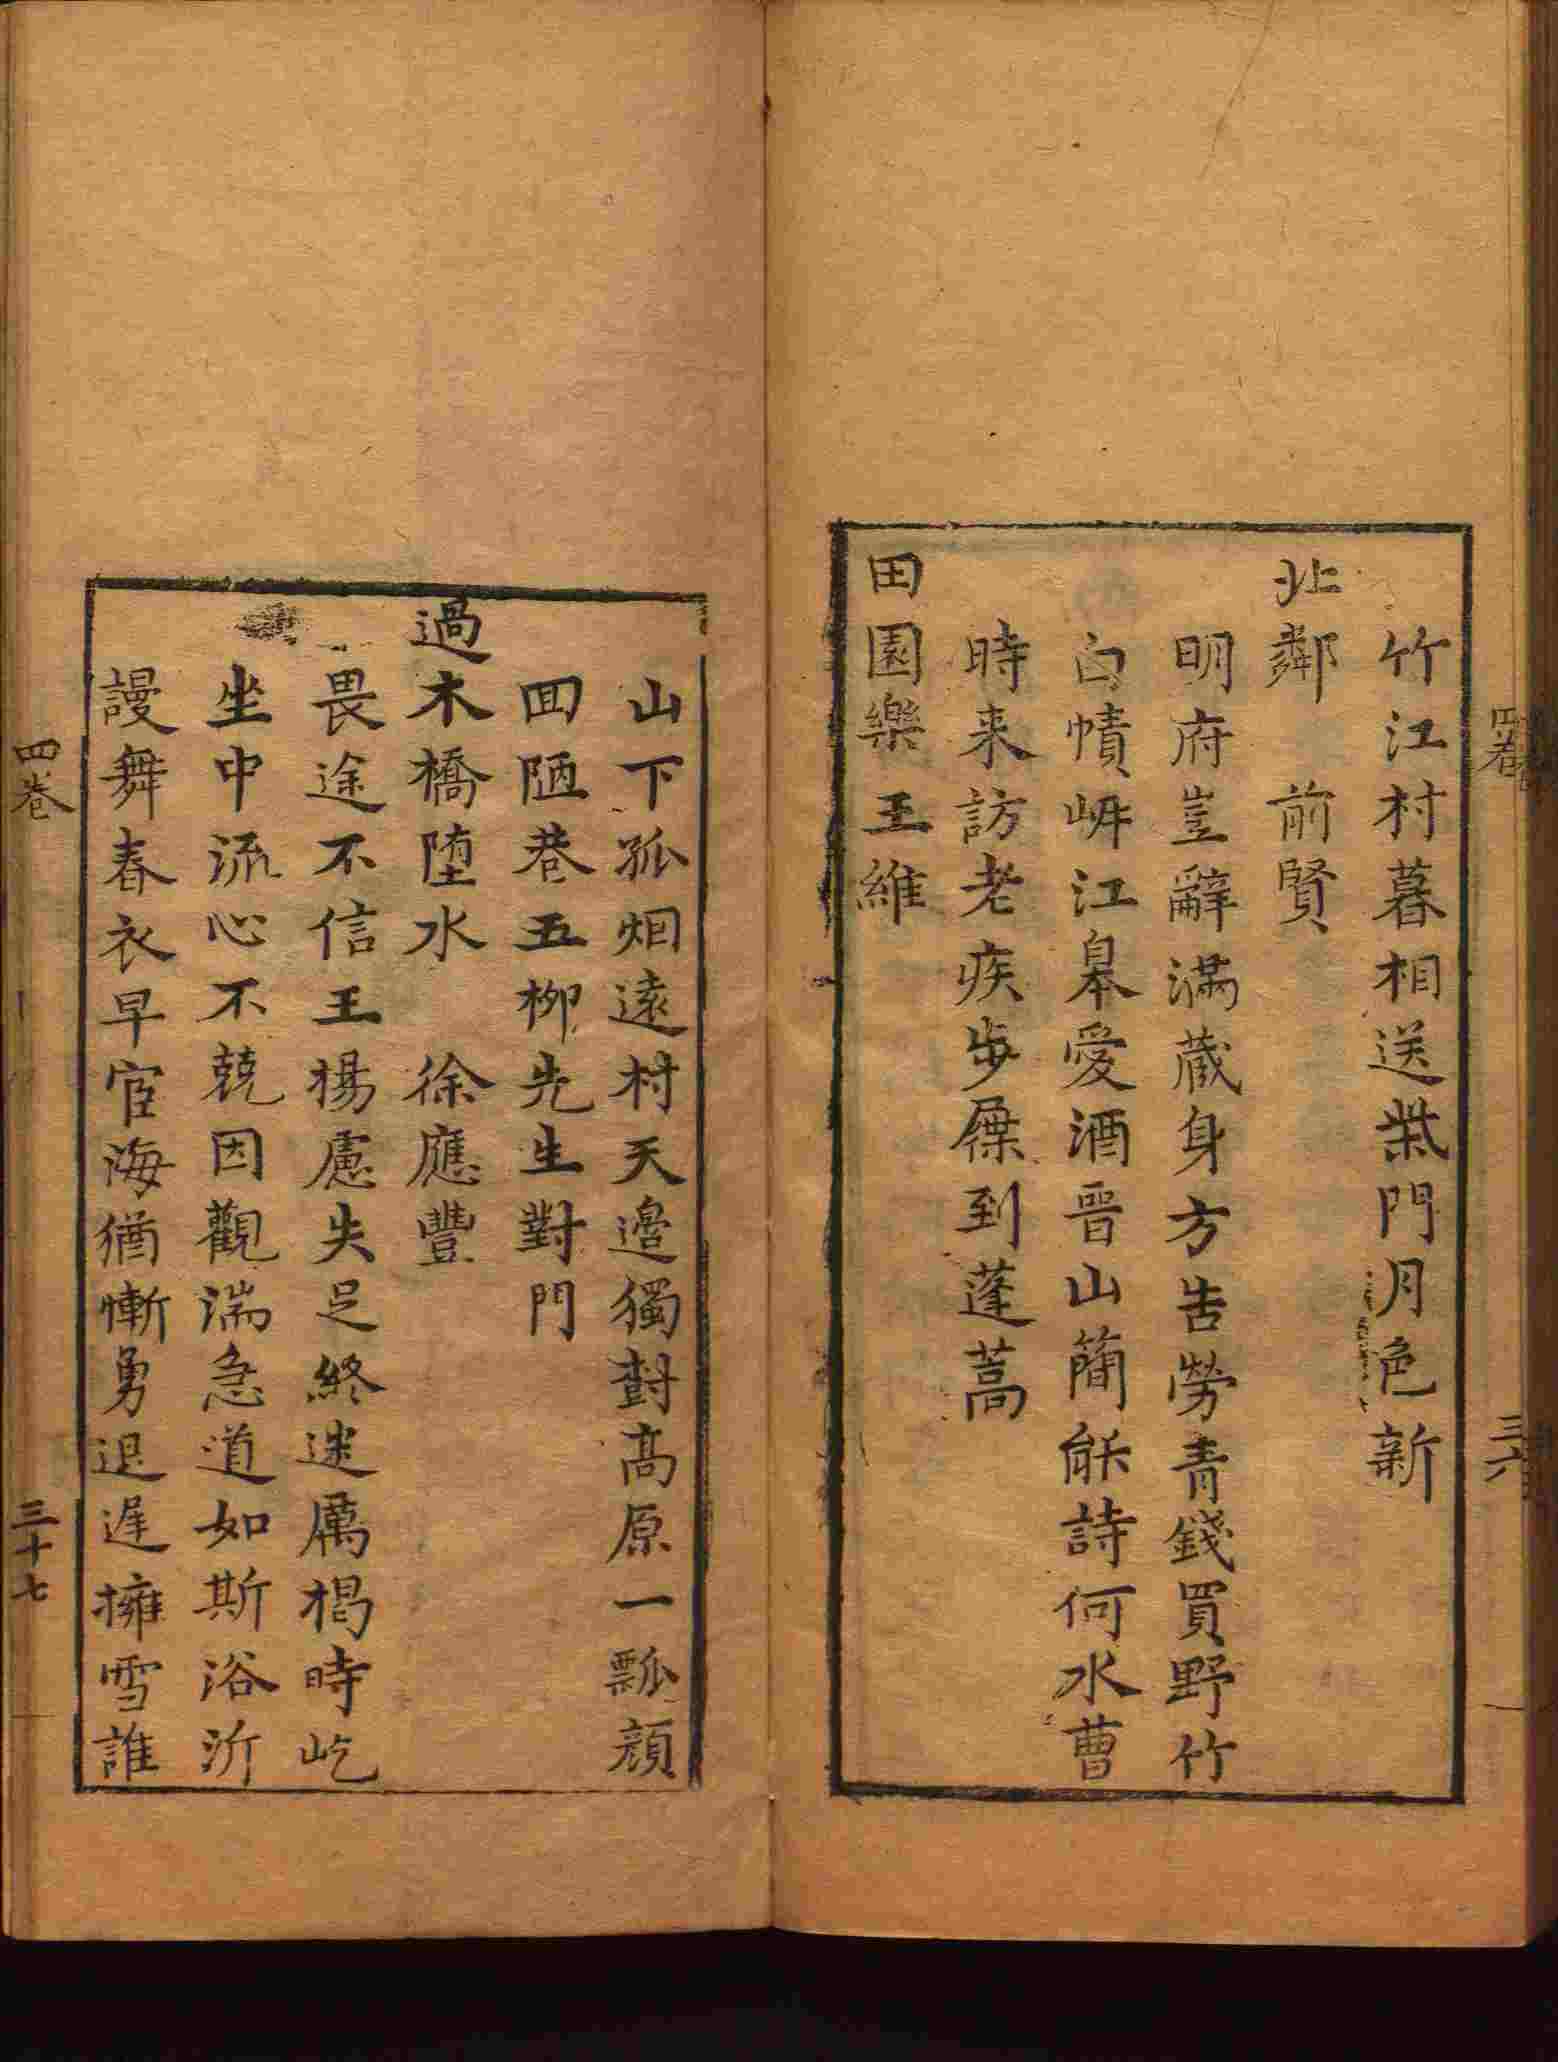 竹江村暮相送柴門月色新
北鄰　前賢
明府豈辭滿蔵身方告勞青錢買野竹
白幘岍江皋愛酒晉山簡能詩何水曹
時来訪老疾步屧到蓬蒿
田園樂 王維
四卷
三六
山下孤烟遠村天邉獨對高原一瓢顔
囬陋巷五栁先生對門
過木橋墮水　徐應豐
畏途不信王楊慮失足終迷厲揭時屹
坐中流心不兢因觀湍急道如斯浴沂
謾舞春衣早宦海猶慚勇退遅擁雪誰
四卷
三十七